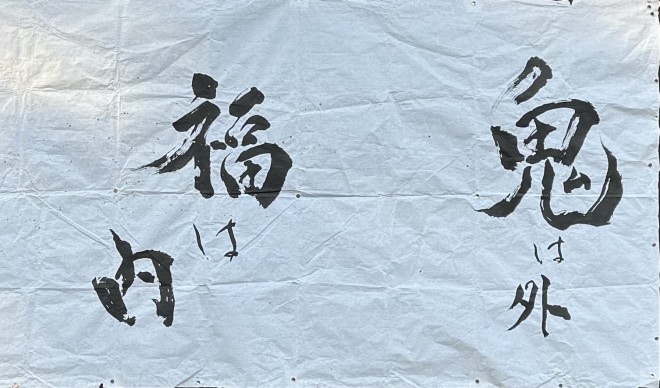 鬼は外
福は内